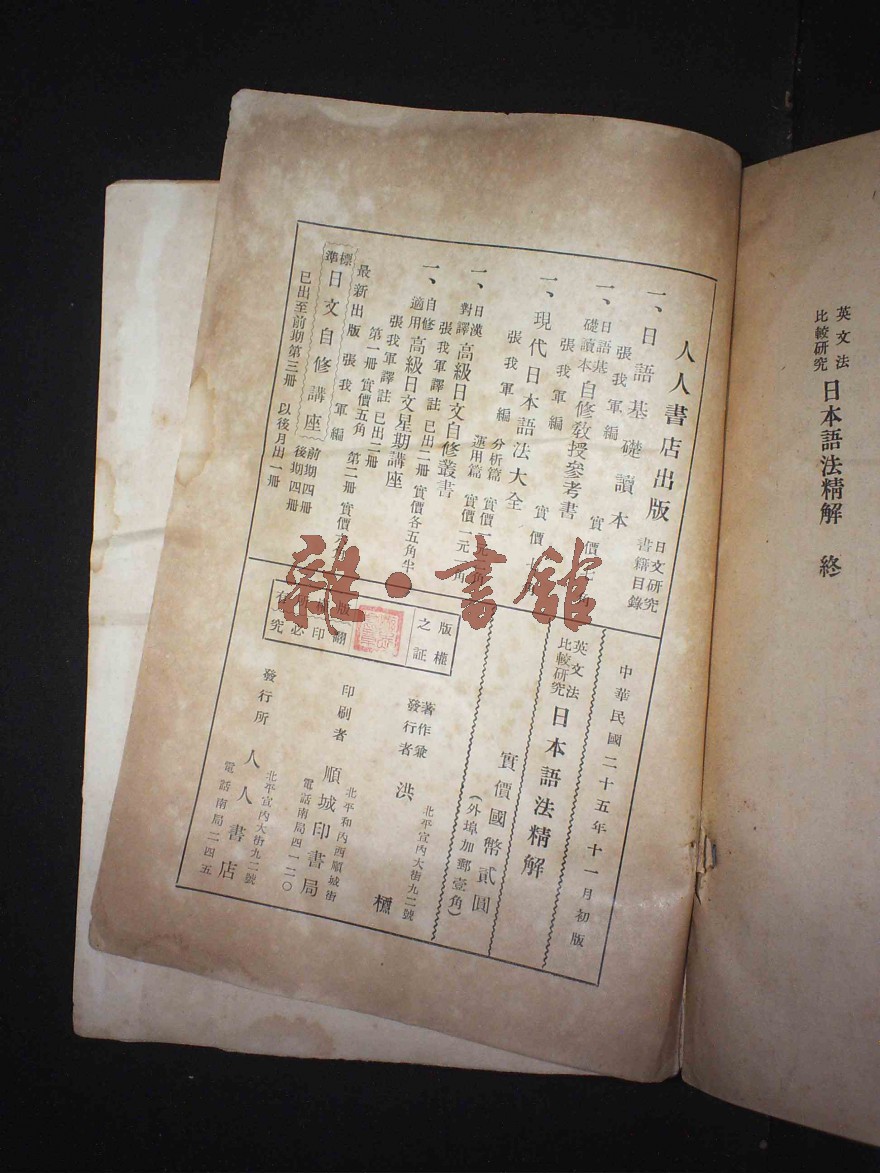 英文法
比較研究
日本語法精解 終
人人書店出版
日文研究
書籍目錄
一、日語基礎讀本
張我軍編
實價七
一、日語基
礎讀本
自修教授參考書
張我軍編
一、現代日本語法大全
張我軍編
分析篇 實價一元二角
運用篇 實價一元
實價
一、日漢
對譯
高級日文自修叢書
張我軍譯註 已出二冊 實價各五角半
一、自修
適用
高級日文星期講座
張我軍譯註 已出二冊
第一冊 實價五角 第二冊 實價六角
最新出版 張我軍編
標準
日文自修講座
前期四冊
後期四冊
已出至前期第三冊 以後月出一冊
中華民國二十五年十一月初版
英文法
比較研究
日本語法精解
實價國幣貳圓
(外埠加郵壹角)
版權
之証
版權所有
翻印必究
著作兼
發行者
洪 櫃
北平宣內大街九二號
印刷者
順城印書局
北平和內西順城街
電話南局四一二〇
發行所
人人書店
北平宣內大街九二號
電話南局二四五
雜·書館